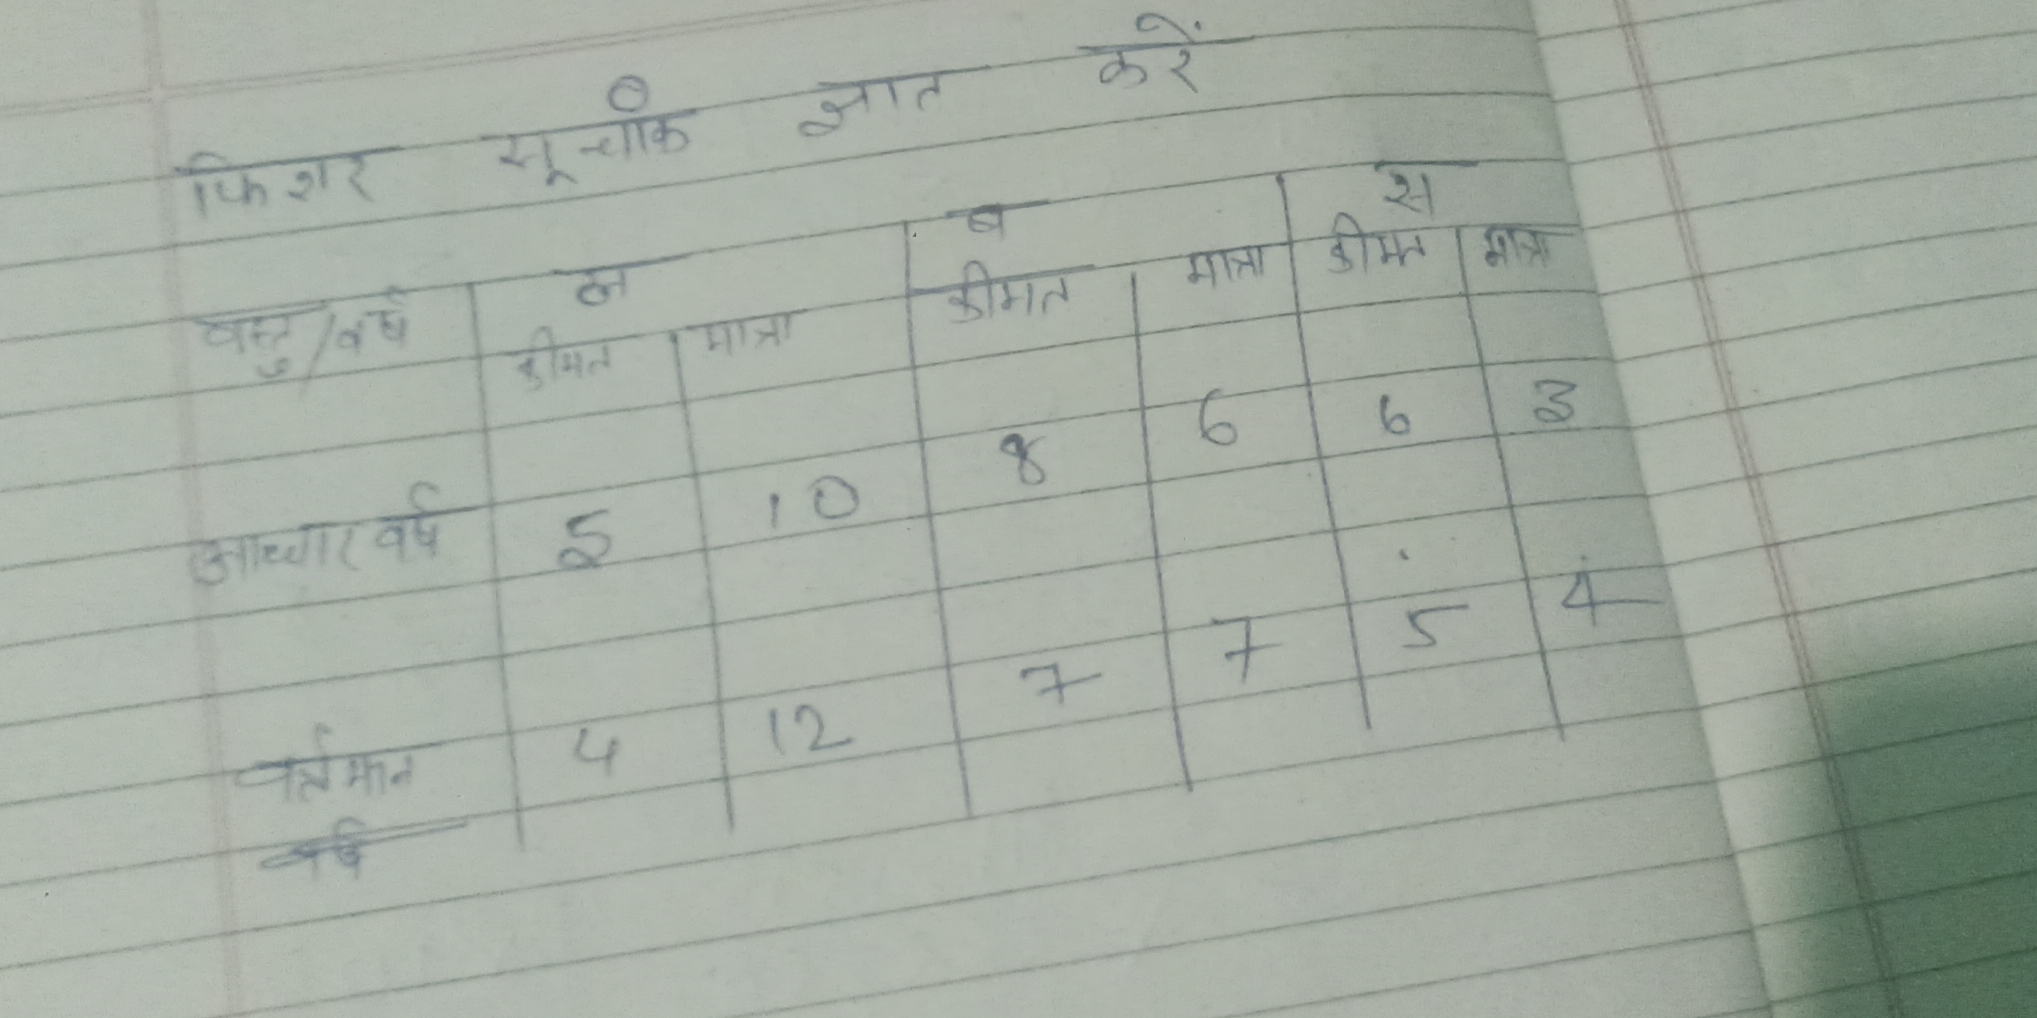 फिशर सूचांक ज्ञात करें
वस्तु/वर्ष अ ब स
कीमत मात्रा कीमत मात्रा कीमत मात्रा
आधार वर्ष 5 10 8 6 6 3
वर्तमान वर्ष 4 12 7 7 5 4